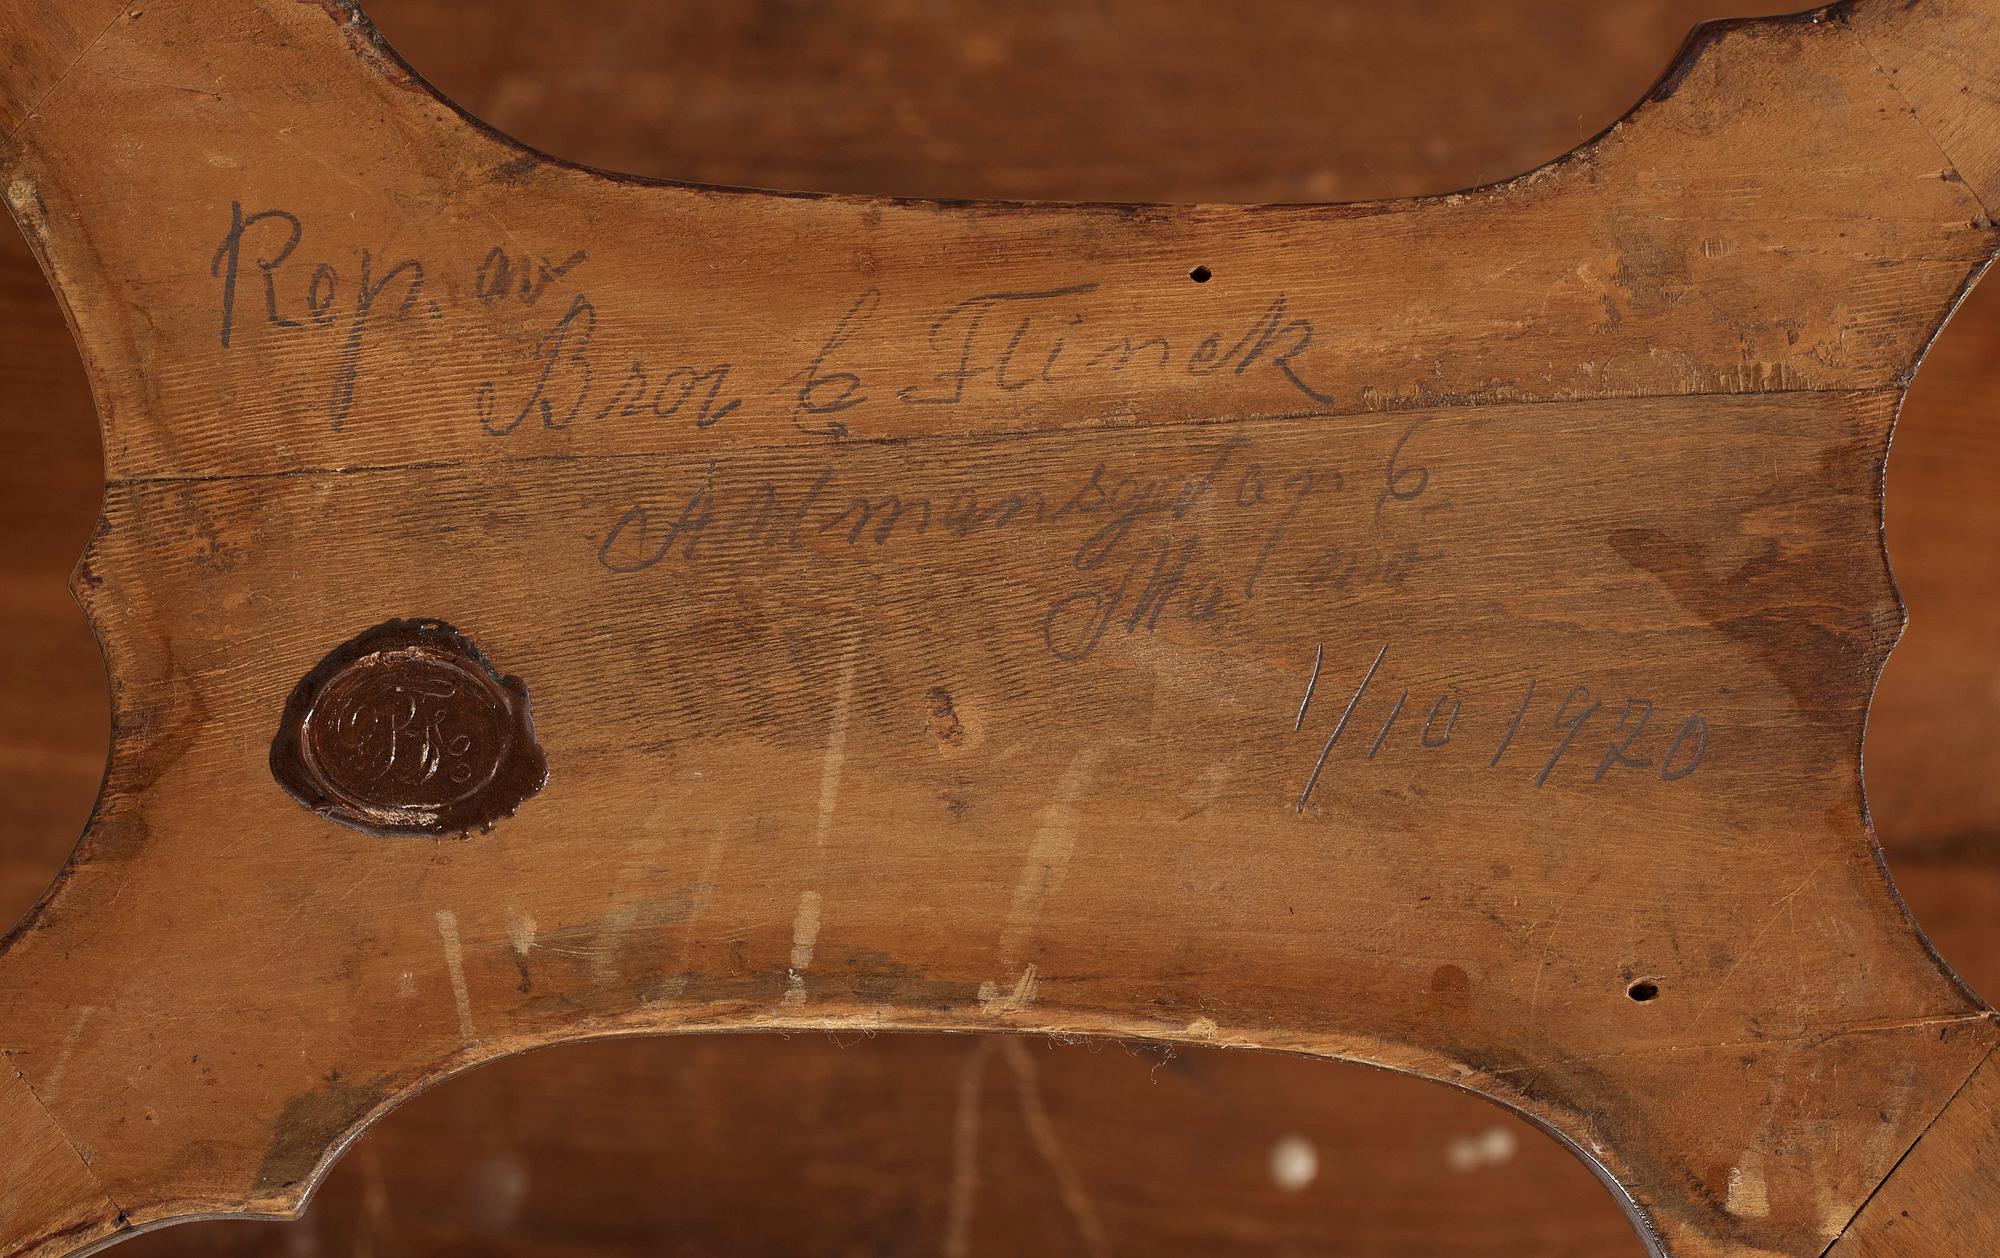 Rep. av
Bror G Flinck
Almansgatan 6.
Malmö
1/10 1970